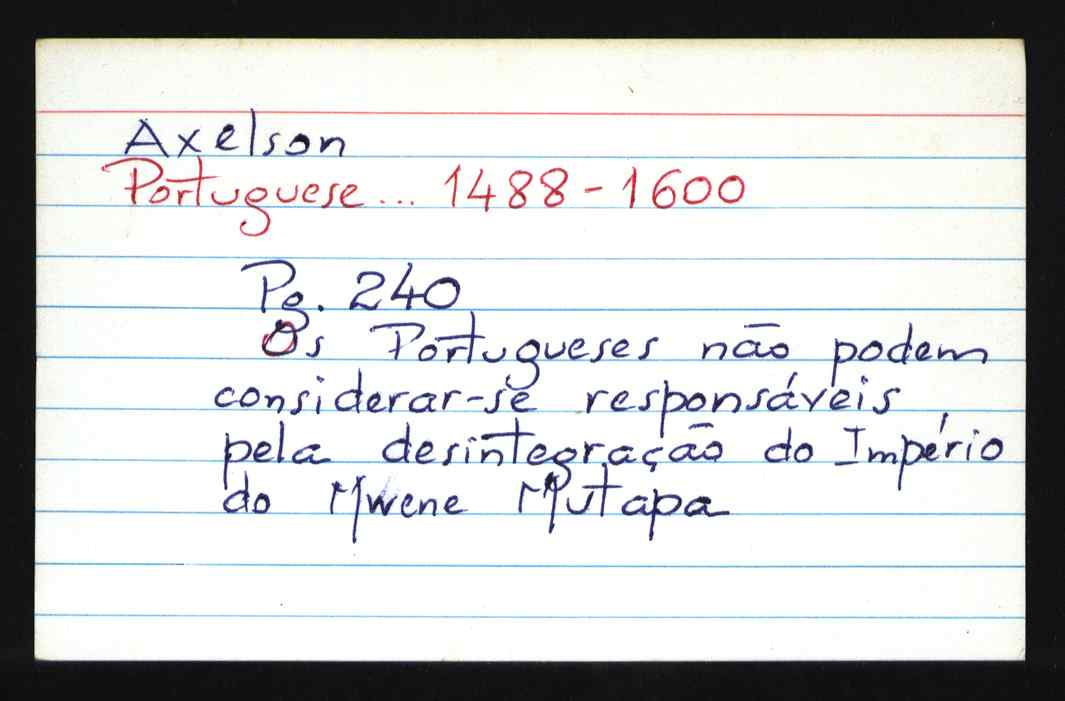 Axelson
Portuguese... 1488-1600
Pg. 240
Os Portugueses não podem
considerar-se responsáveis
pela desintegração do Império
do Mwene Mutapa